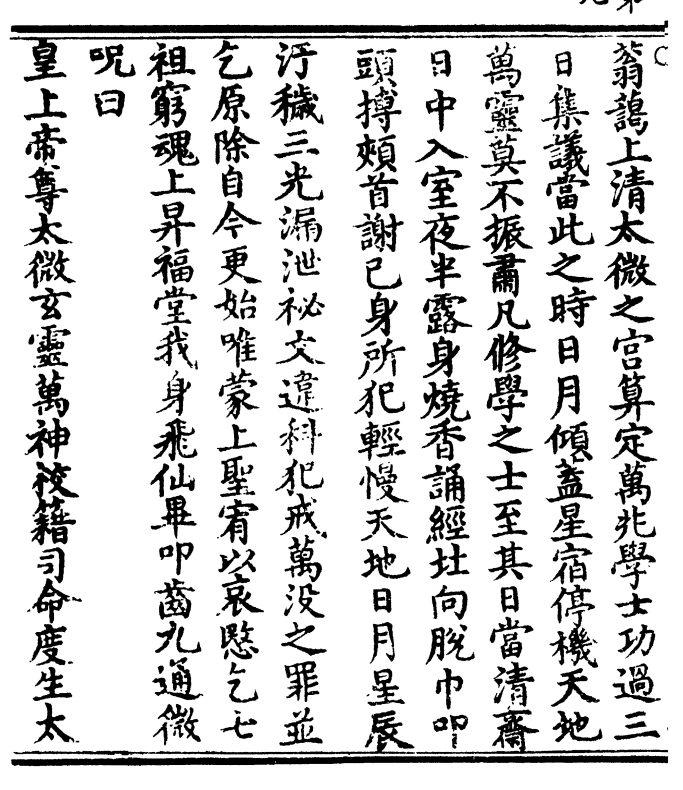 蓊藹上清太微之宮算定萬兆學士功過三
日集議當此之時日月傾蓋星宿停機天地
萬靈莫不振肅凡修學之士至其日當清齋
日中入室夜半露身燒香誦經北向脫巾叩
頭搏頰首謝己身所犯輕慢天地日月星辰
汙穢三光漏泄祕文違科犯戒萬沒之罪並
乞原除自今更始唯蒙上聖宥以哀愍乞七
祖窮魂上昇福堂我身飛仙畢叩齒九通微
呪曰
皇上帝尊太微玄靈萬神校籍司命度生太